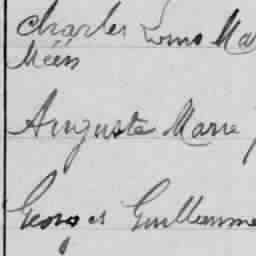 Charles Louis Ma
Méés
Auguste Marie
Georges Guillaume